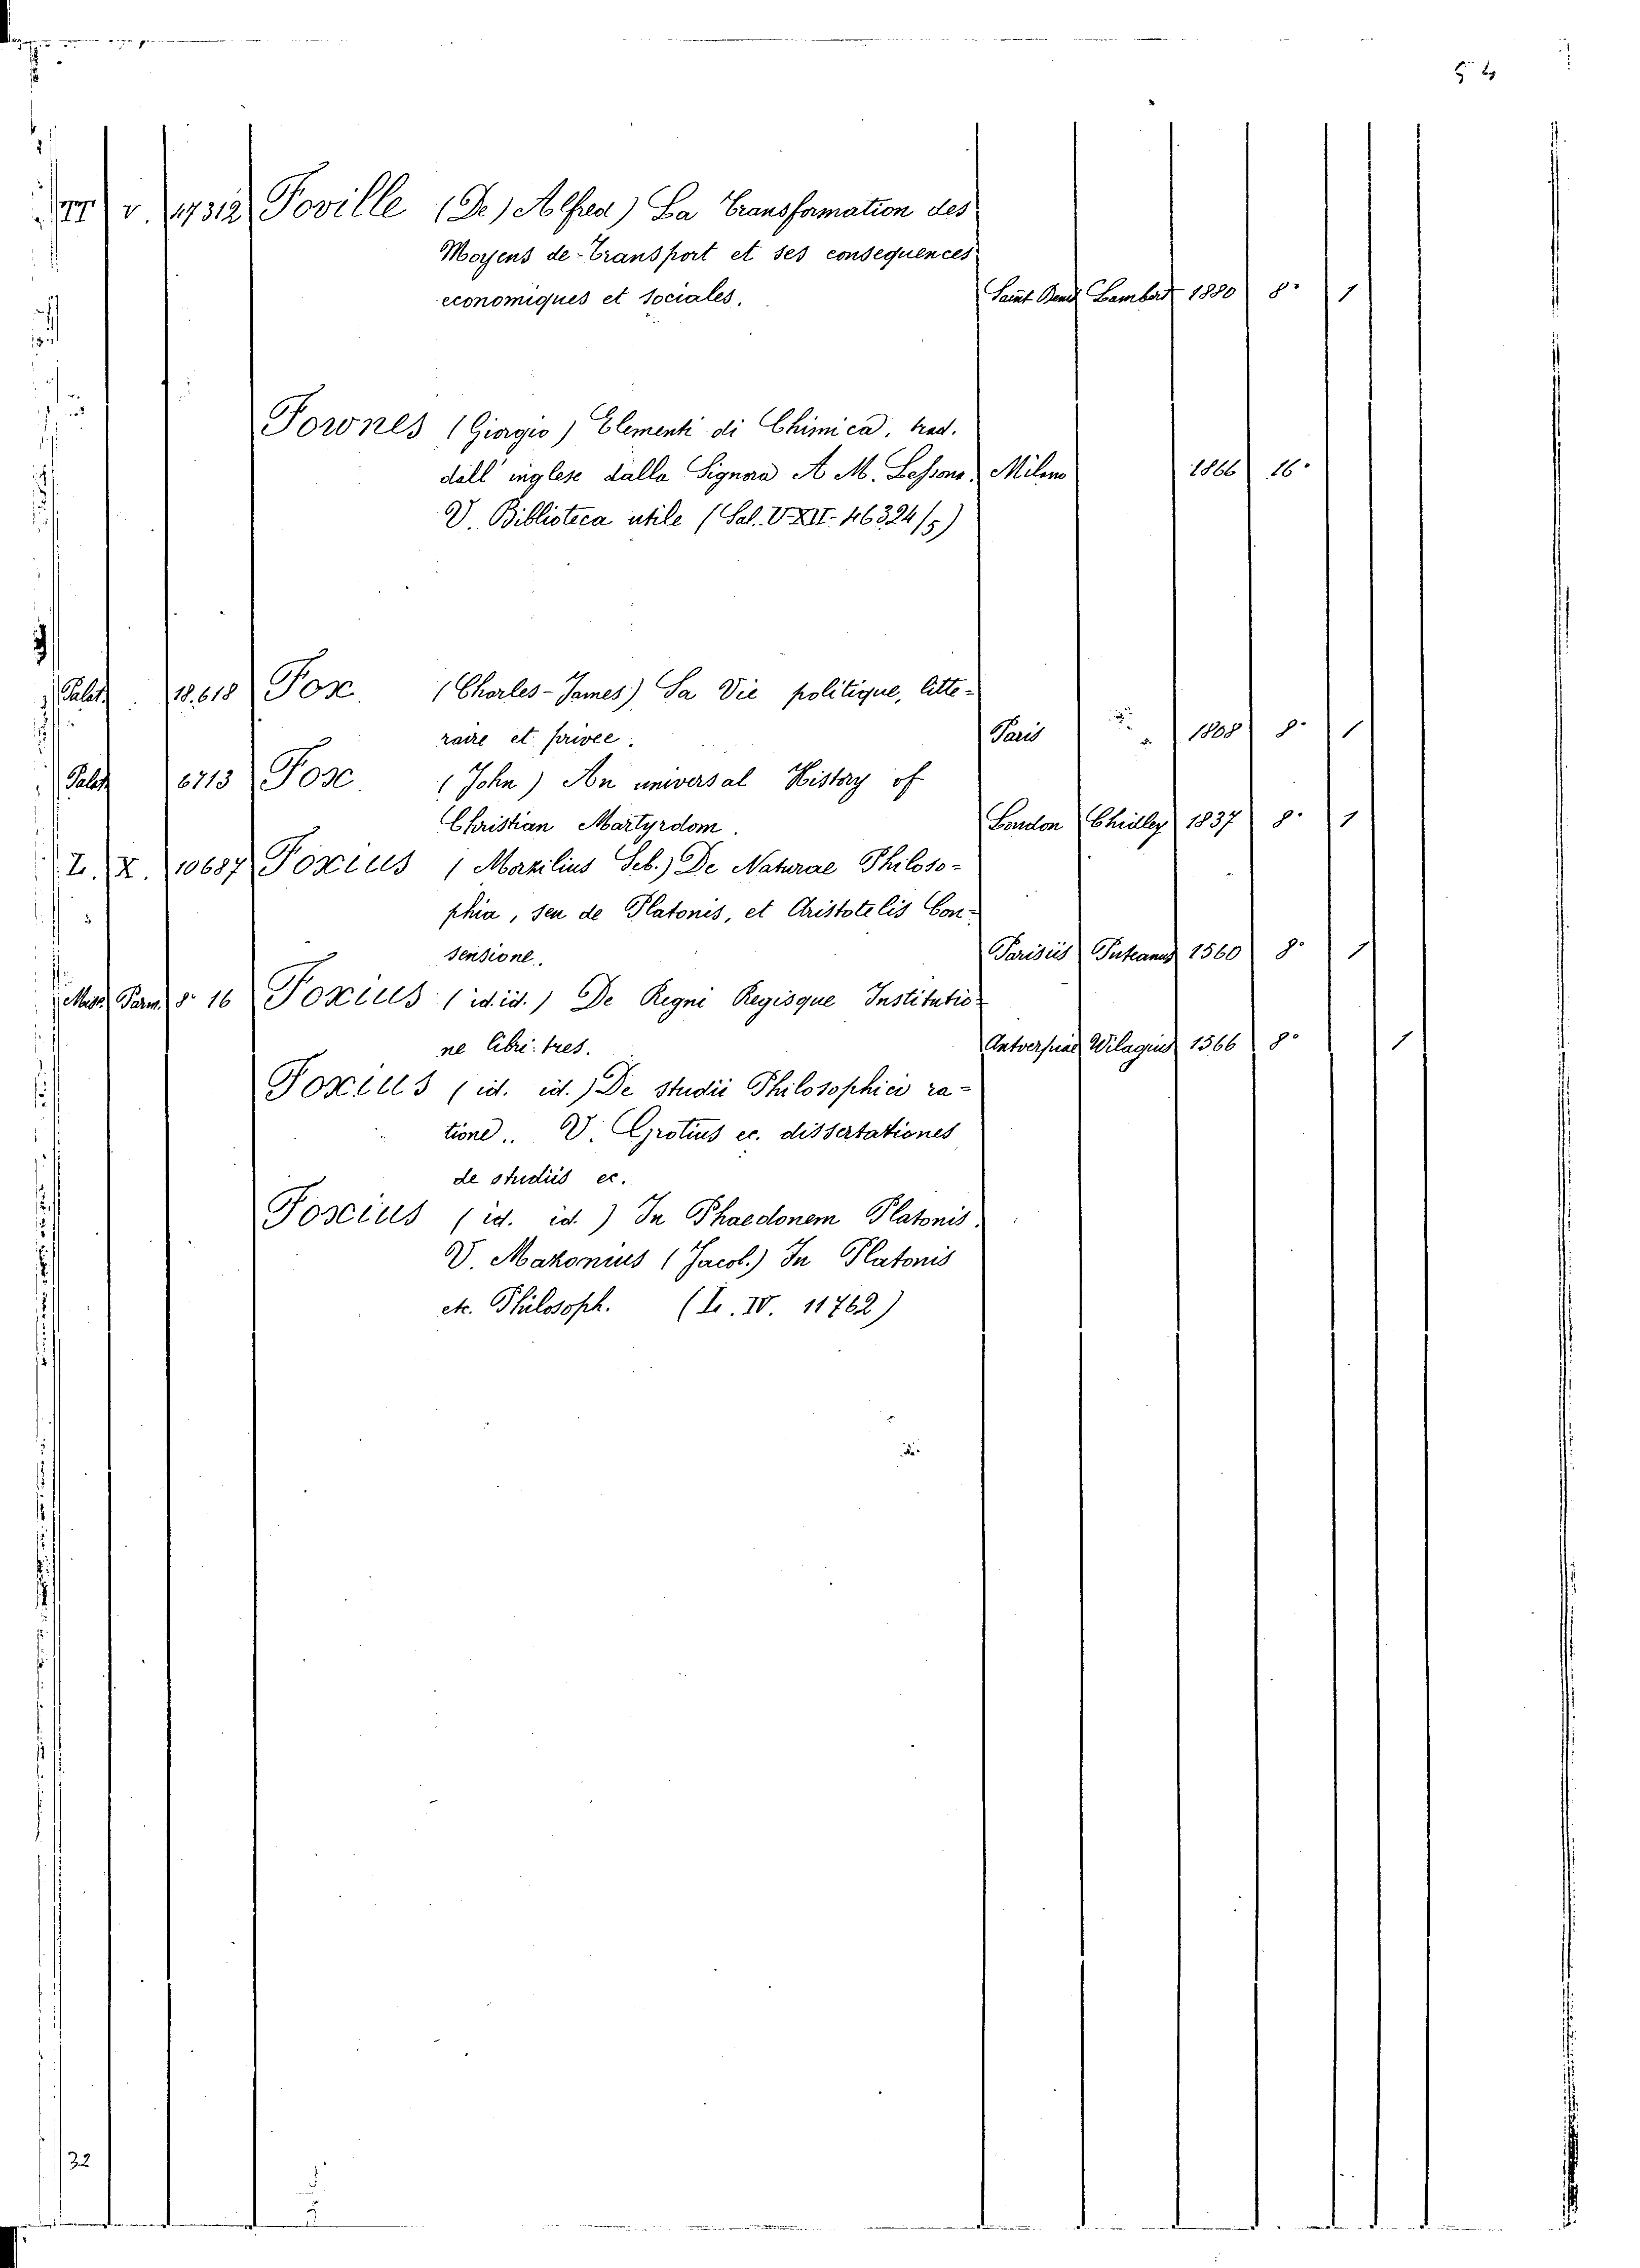 v. 47312 Foville (De) Alfred) La Transformation des
Moyens de Transport et ses consequences
economiques et sociales. Saint Denis Lambert 1880 8° 1
Fownes (Giorgio) Elementi di Chimica, trad.
dall' inglese dalla Signora A M. Lessona, Milano 1866 16°
V. Biblioteca utile (Sal. V. XII. 46324/5)
Palat. 18.618 Fox (Charles-James) Sa Vie politique, litte-
raire et privée. Paris 1808 8° 1
Palat. 6713 Fox (John) An universal History of
Christian Martyrdom. London Chidley 1837 8° 1
L. X. 10687 Foxius (Morzilius Seb.) De Naturae Philoso-
phia, seu de Platonis, et Aristotelis Con-
sensione. Parisiis Puteanus 1560 8° 1
Parm. 8° 16 Foxius (id. id.) De Regni Regisque Institutio-
ne libri tres. Antverpiae 1566 8° 1
Foxius (id. id.) De studii Philosophici ra-
tione.. V. Grotius ec. dissertationes
de studiis ec.
Foxius (id. id.) In Phaedonem Platonis.
V. Mazonius (Jacob.) In Platonis
etc. Philosoph. (L. IV. 11762)
32